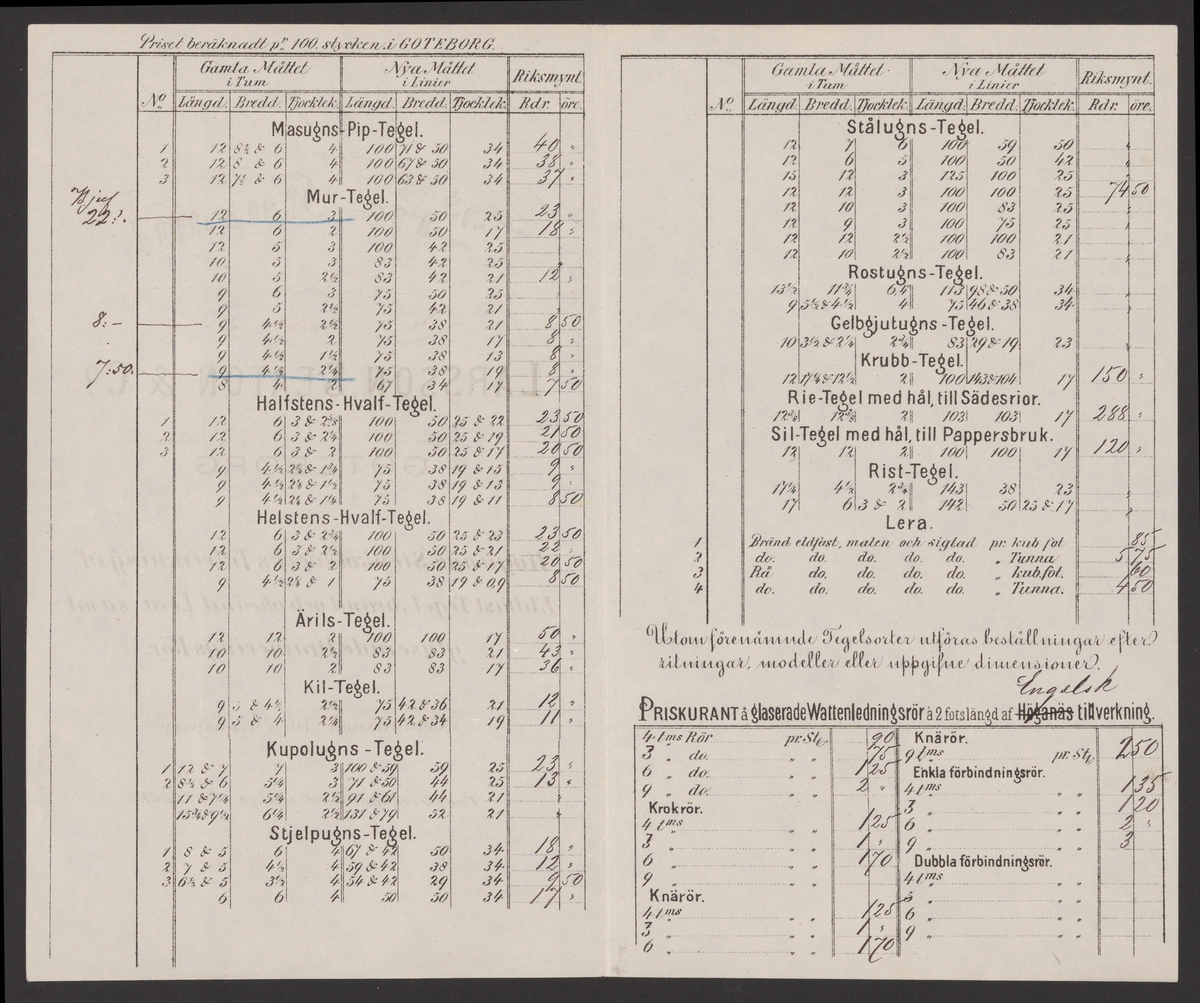 Priset beräknadt pr 100. stycken i GÖTEBORG.
Gamla Måttet Nya Måttet Riksmynt.
i Tum i Linier
No. Längd. Bredd. Tjocklek. Längd. Bredd. Tjocklek. Rdr. öre.
Masugns-Pip-Tegel.
1 12 8½ & 6 4 100 71 & 50 34 40 "
2 12 8 & 6 4 100 67 & 50 34 38 "
3 12 7½ & 6 4 100 63 & 50 34 37 "
Mur-Tegel.
22:". 12 6 3 100 50 25 23 "
12 6 2 100 50 17 18 "
12 5 3 100 42 25
10 5 3 83 42 25 "
10 5 2½ 83 42 21 12 "
9 6 3 75 50 25
9 5 2½ 75 42 21
8:- 9 4½ 2½ 75 38 21 8 50
9 4½ 2 75 38 17 8 "
9 4½ 1½ 75 38 13 8 "
7:50. 9 4½ 2¼ 75 38 19 8 "
8 4 2 67 34 17 7 50
Halfstens-Hvalf-Tegel.
1 12 6 3 & 2⅝ 100 50 25 & 22 23 50
2 12 6 3 & 2¼ 100 50 25 & 19 21 50
3 12 6 3 & 2 100 50 25 & 17 20 50
9 4½ 2¼ & 1¾ 75 38 19 & 15 9 "
9 4½ 2¼ & 1½ 75 38 19 & 13 9 "
9 4½ 2¼ & 1¼ 75 38 19 & 11 8 50
Helstens-Hvalf-Tegel.
12 6 3 & 2¾ 100 50 25 & 23 23 50
12 6 3 & 2½ 100 50 25 & 21 22 "
12 6 3 & 2 100 50 25 & 17 20 50
9 4½ 2¼ & 1 75 38 19 & 0,9 8 50
Ärils-Tegel.
12 12 2 100 100 17 50 "
10 10 2½ 83 83 21 43 "
10 10 2 83 83 17 36 "
Kil-Tegel.
9 5 & 4½ 2½ 75 42 & 36 21 12 "
9 5 & 4 2¼ 75 42 & 34 19 11 "
Kupolugns-Tegel.
1 12 & 7 7 3 100 & 59 59 25 23 "
2 8½ & 6 5¼ 3 71 & 50 44 25 13 "
11 & 7¼ 5¼ 2½ 91 & 61 44 21 "
15¾ & 9½ 6¼ 2½ 131 & 79 52 21 "
Stjelpugns-Tegel.
1 8 & 5 6 4 67 & 42 50 34 18 "
2 7 & 5 4½ 4 59 & 42 38 34 12 "
3 6½ & 5 3½ 4 54 & 42 29 34 9 50
6 6 4 50 50 34 17 "
Gamla Måttet Nya Måttet Riksmynt.
i Tum i Linier
No. Längd. Bredd. Tjocklek. Längd. Bredd. Tjocklek. Rdr. öre.
Stålugns-Tegel.
12 7 6 100 59 50 "
12 6 5 100 50 42 "
15 12 3 125 100 25 "
12 12 3 100 100 25 74 50
12 10 3 100 83 25 "
12 9 3 100 75 25 "
12 12 2½ 100 100 21 "
12 10 2½ 100 83 21 "
Rostugns-Tegel.
13½ 11¾ & 6 4 113 98 & 50 34 "
9 5½ & 4½ 4 75 46 & 38 34 "
Gelbgjutugns-Tegel.
10 3½ & 2¼ 2¾ 83 29 & 19 23 "
Krubb-Tegel.
12 17¼ & 12½ 2 100 143 & 104 17 150 "
Rie-Tegel med hål, till Sädesrior.
12⅜ 12⅜ 2 103 103 17 288 "
Sil-Tegel med hål, till Pappersbruk.
12 12 2 100 100 17 120 "
Rist-Tegel.
17¼ 4½ 2¾ 143 38 23 "
17 6 3 & 2 142 50 25 & 17 "
Lera.
1 Bränd eldfast, malen och sigtad pr. kub fot 85
2 do. do. do. do. do. " Tunna 5 75
3 Rå do. do. do. do. " kub.fot. 60
4 do. do. do. do. do. " Tunna. 4 50
Utom förenämnde Tegelsorter utföras beställningar efter
ritningar, modeller eller uppgifne dimensioner.
Engelsk
PRISKURANT å glaserade Wattenledningsrör à 2 fots längd af Höganäs tillverkning.
4 tms Rör pr. St. 90
3 " do. " " 75
6 " do. " " 1 25
9 " do. " " 2 "
Krokrör.
4 tms " " 1 25
3 " " " 1 "
6 " " " 1 70
9 " " "
Knärör.
4 tms " " 1 25
3 " " " 1 "
6 " " " 1 70
Knärör.
9 tms pr. St. 2 50
Enkla förbindningsrör.
4 tms " " 1 35
3 " " " 1 20
6 " " " 2 "
9 " " " 3
Dubbla förbindningsrör.
4 tms " "
3 " " "
6 " " "
9 " " "